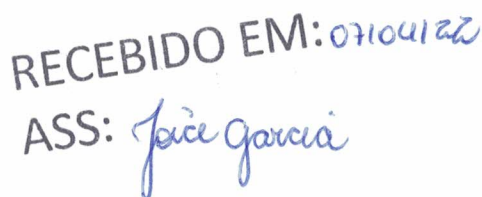 RECEBIDO EM: 07/04/22
ASS: Joice Garcia